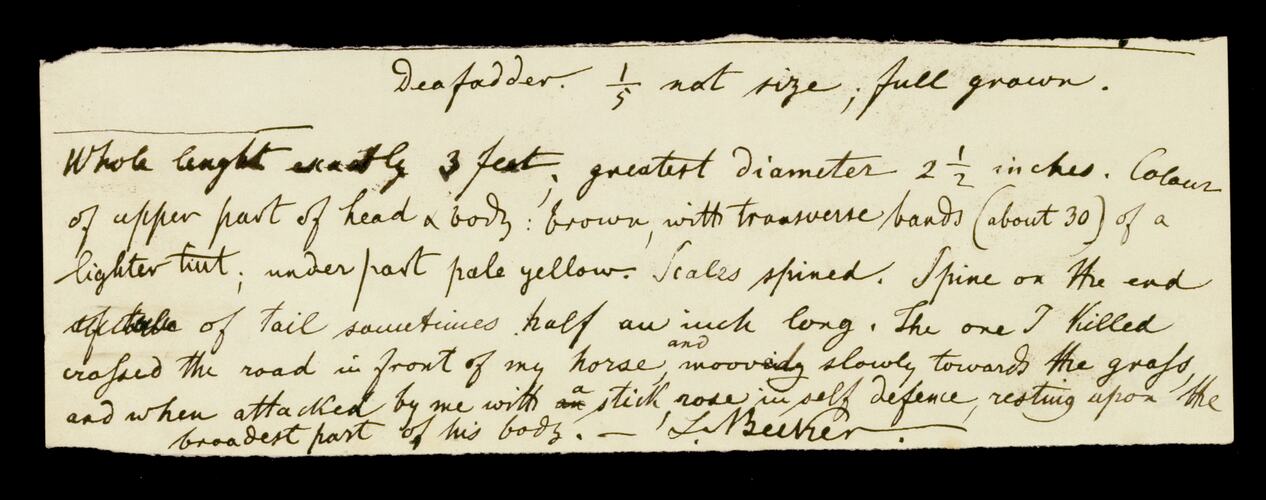 Deafadder. 1/5 nat size; full grown.
Whole lenght exactly 3 feet; greatest diameter 2 1/2 inches. Colour
of upper part of head & body: brown, with transverse bands (about 30) of a
lighter tint; under part pale yellow. Scales spined. Spine on the end
of tail sometimes half an inch long. The one I killed
crossed the road in front of my horse, and mooving slowly towards the grass,
and when attacked by me with a stick, rose in self defence, resting upon the
broadest part of his body. — L. Becker. —